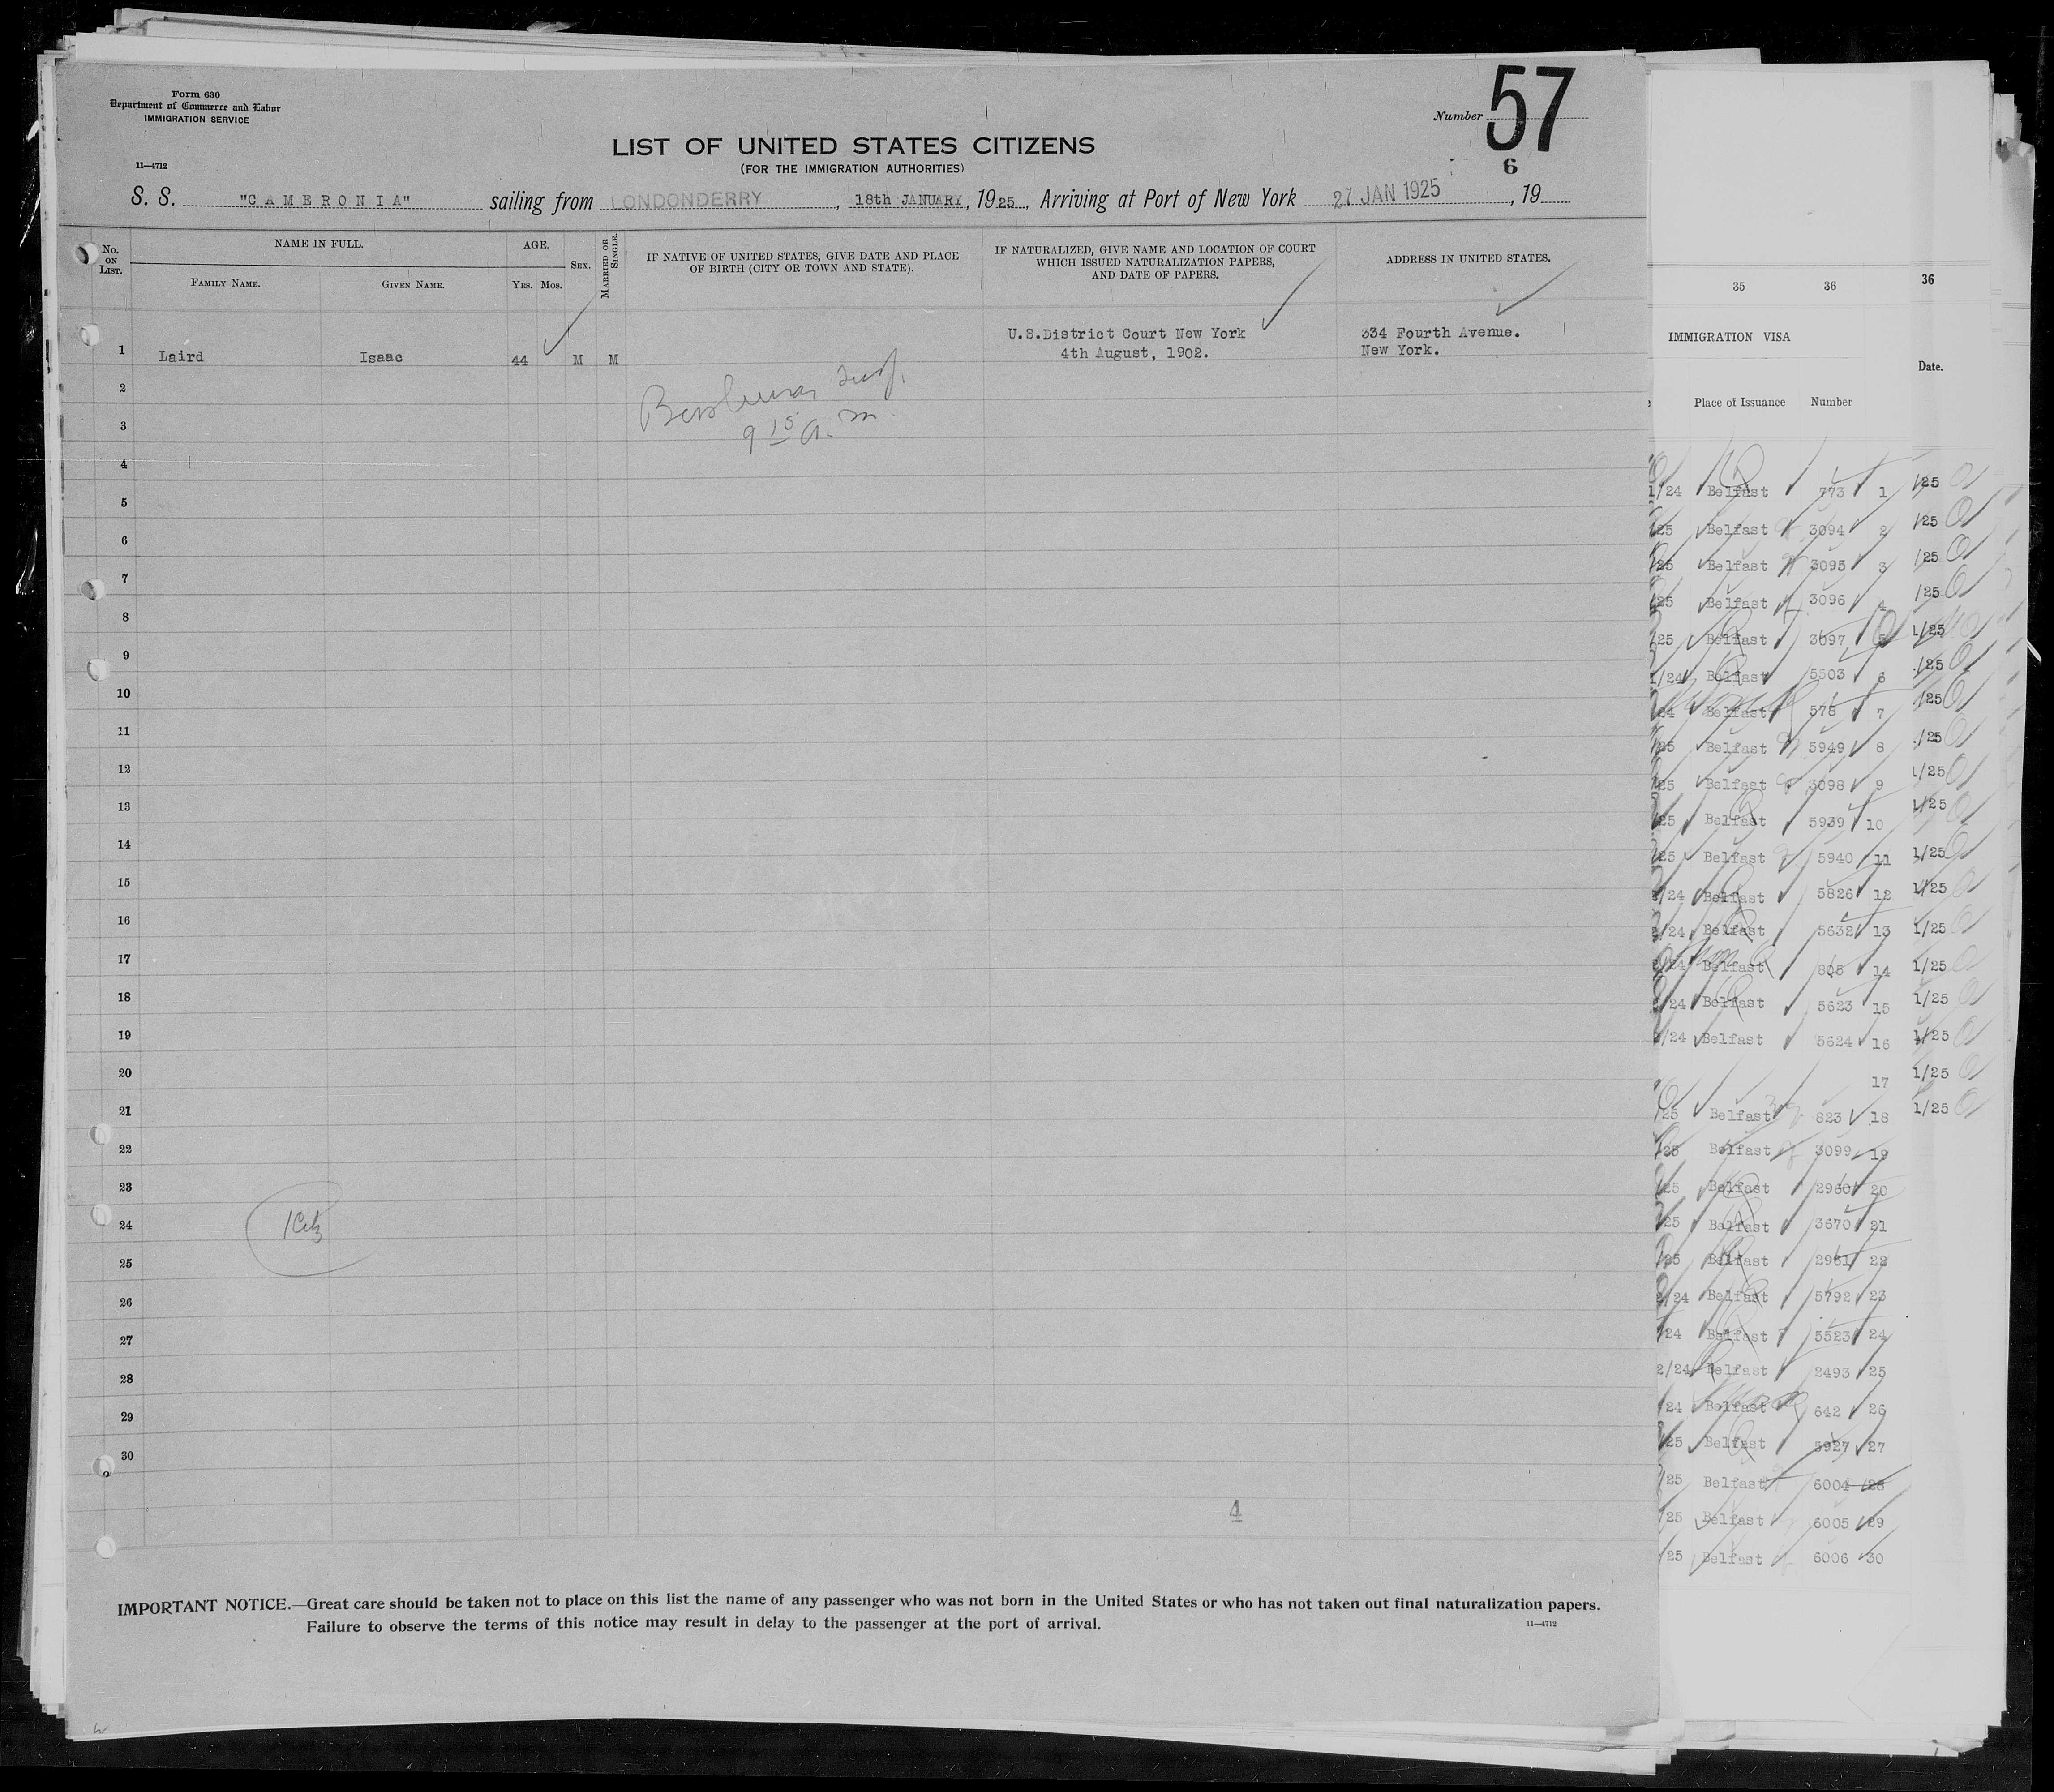 Form 630
Department of Commerce and Labor
IMMIGRATION SERVICE
11—4712
Number 57
6
LIST OF UNITED STATES CITIZENS
(FOR THE IMMIGRATION AUTHORITIES)
S. S. "CAMERONIA" sailing from LONDONDERRY, 18th JANUARY, 1925, Arriving at Port of New York 27 JAN 1925, 19
No. ON LIST. NAME IN FULL. AGE. SEX. MARRIED OR SINGLE. IF NATIVE OF UNITED STATES, GIVE DATE AND PLACE OF BIRTH (CITY OR TOWN AND STATE). IF NATURALIZED, GIVE NAME AND LOCATION OF COURT WHICH ISSUED NATURALIZATION PAPERS, AND DATE OF PAPERS. ADDRESS IN UNITED STATES.
FAMILY NAME. GIVEN NAME. YRS. MOS.
U.S.District Court New York 334 Fourth Avenue.
1 Laird Isaac 44 M M 4th August, 1902. New York.
2
3
9 15 a.m.
4
5
6
7
8
9
10
11
12
13
14
15
16
17
18
19
20
21
22
23
24
25
26
27
28
29
30
4
IMPORTANT NOTICE.—Great care should be taken not to place on this list the name of any passenger who was not born in the United States or who has not taken out final naturalization papers.
Failure to observe the terms of this notice may result in delay to the passenger at the port of arrival.
11—4712
35 36
IMMIGRATION VISA
Place of Issuance Number
1/24 Belfast 773 1
25 Belfast 3094 2
25 Belfast 3095 3
25 Belfast 3096 4
25 Belfast 3097 5
1/24 Belfast 5503 6
24 Belfast 578 7
25 Belfast 5949 8
25 Belfast 3098 9
25 Belfast 5939 10
25 Belfast 5940 11
/24 Belfast 5826 12
/24 Belfast 5632 13
/24 Belfast 808 14
/24 Belfast 5623 15
/24 Belfast 5624 16
17
25 Belfast 823 18
25 Belfast 3099 19
25 Belfast 2960 20
25 Belfast 3670 21
25 Belfast 2961 22
2/24 Belfast 5792 23
/24 Belfast 5523 24
2/24 Belfast 2493 25
/24 Belfast 642 26
/25 Belfast 5927 27
/25 Belfast 6004 28
/25 Belfast 6005 29
/25 Belfast 6006 30
36
Date.
/25
/25
/25
/25
1/25
/25
/25
/25
1/25
1/25
1/25
1/25
1/25
1/25
1/25
1/25
1/25
1/25